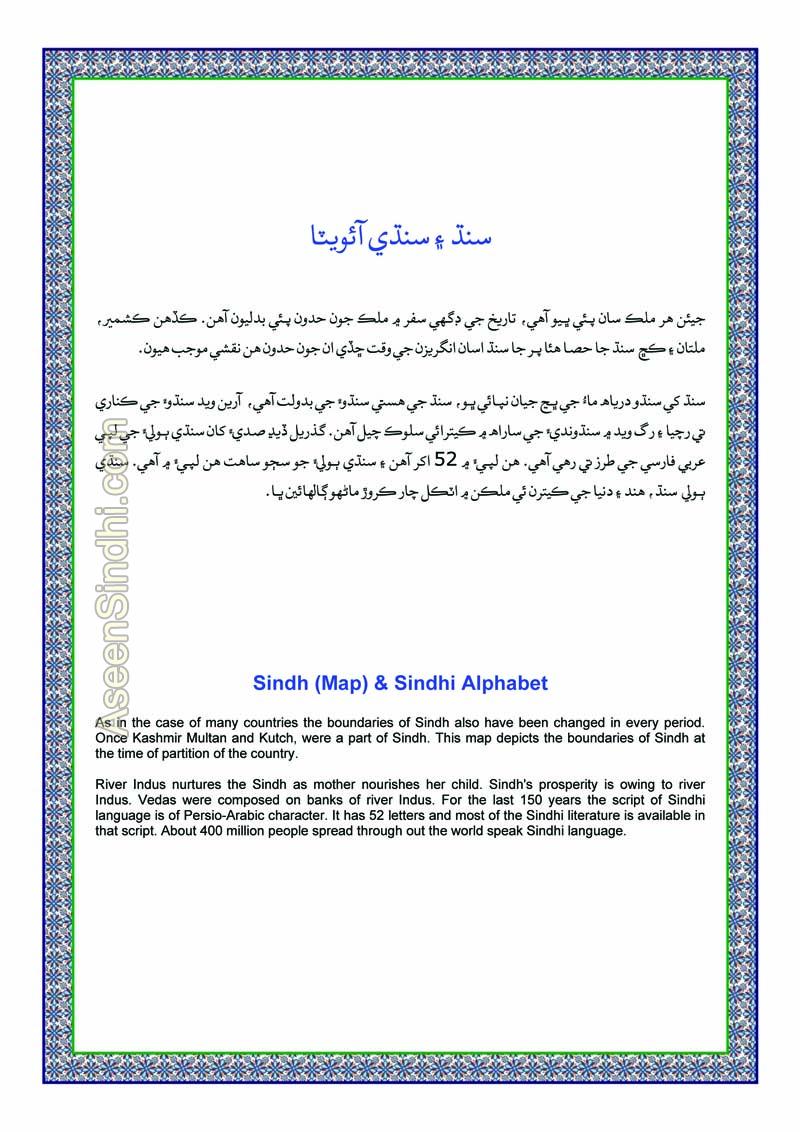 سنڌ ۽ سنڌي آئويٽا
جيئن هر ملڪ سان پئي ٿيو آهي، تاريخ جي ڊگهي سفر ۾ ملڪ جون حدون پئي بدليون آهن. ڪڏهن ڪشمير،
ملتان ۽ ڪڇ سنڌ جا حصا هئا پر جا سنڌ اسان انگريزن جي وقت ڇڏي ان جون حدون هن نقشي موجب هيون.
سنڌ کي سنڌو درياهہ ماءُ جي ٻچ جيان نپائي ٿو، سنڌ جي هستي سنڌوءَ جي بدولت آهي، آرين ويد سنڌوءَ جي ڪناري
تي رچيا ۽ رگ ويد ۾ سنڌونديءَ جي ساراهہ ۾ ڪيترائي سلوڪ چيل آهن. گذريل ڏيڍ صديءَ کان سنڌي ٻوليءَ جي لپي
عربي فارسي جي طرز تي رهي آهي. هن لپيءَ ۾ 52 اکر آهن ۽ سنڌي ٻوليءَ جو سڄو ساهت هن لپيءَ ۾ آهي. سنڌي
ٻولي سنڌ، هند ۽ دنيا جي ڪيترن ئي ملڪن ۾ اٽڪل چار ڪروڙ ماڻهو ڳالهائين ٿا.
Sindh (Map) & Sindhi Alphabet
As in the case of many countries the boundaries of Sindh also have been changed in every period.
Once Kashmir Multan and Kutch, were a part of Sindh. This map depicts the boundaries of Sindh at
the time of partition of the country.
River Indus nurtures the Sindh as mother nourishes her child. Sindh's prosperity is owing to river
Indus. Vedas were composed on banks of river Indus. For the last 150 years the script of Sindhi
language is of Persio-Arabic character. It has 52 letters and most of the Sindhi literature is available in
that script. About 400 million people spread through out the world speak Sindhi language.
AseenSindhi.com